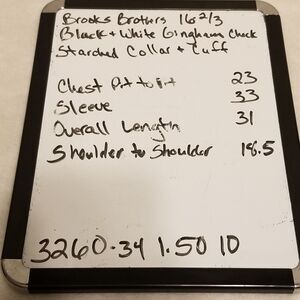 Brooks Brothers 16 2/3
Black + White Gingham Check
Starched Collar + Cuff
Chest Pit to Pit 23
Sleeve 33
Overall Length 31
Shoulder to Shoulder 18.5
3260-34 1.50 10